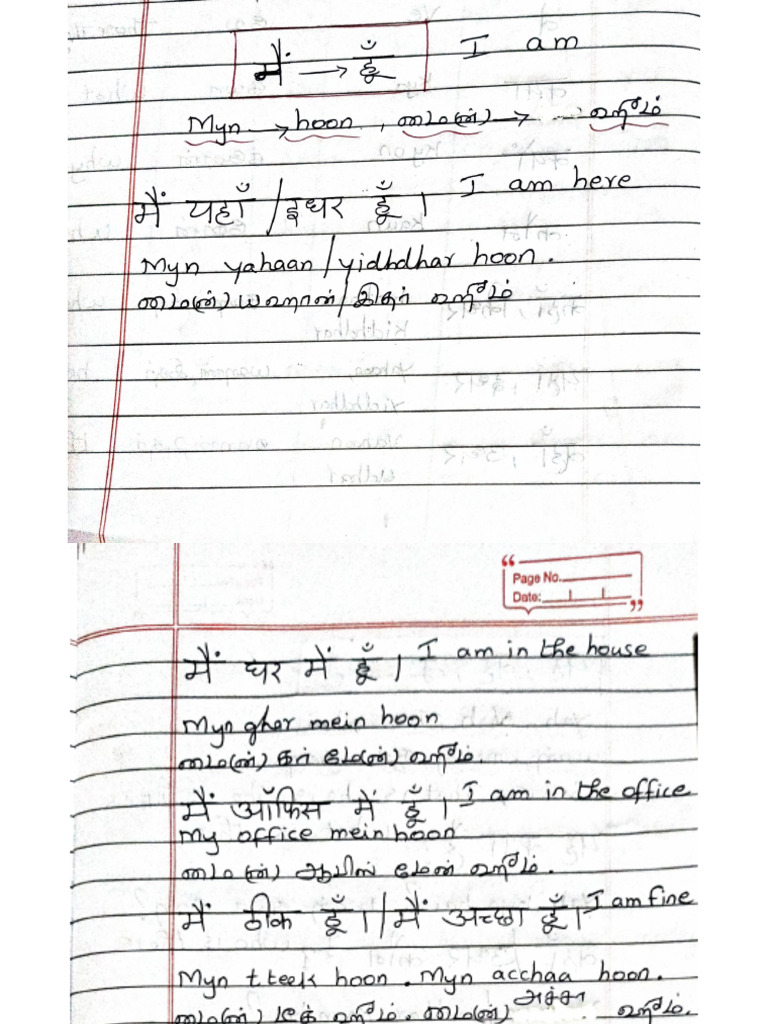 मैं → हूँ I am
Myn → hoon, மை(ன்) → ஹூம்
मैं यहाँ / इधर हूँ । I am here
Myn yahaan / yidhdhar hoon.
மை(ன்) யஹான் / இதர் ஹூம்
Page No.
Date:
मैं घर में हूँ । I am in the house
Myn gher mein hoon
மை(ன்) கர் மே(ன்) ஹூம்.
मैं ऑफिस में हूँ । I am in the office
My office mein hoon
மை(ன்) ஆபிஸ் மேன் ஹூம்.
मैं ठीक हूँ। / मैं अच्छा हूँ। I am fine
Myn tteek hoon. Myn acchaa hoon.
மை(ன்) டீக் ஹூம். மை(ன்) அச்சா ஹூம்.